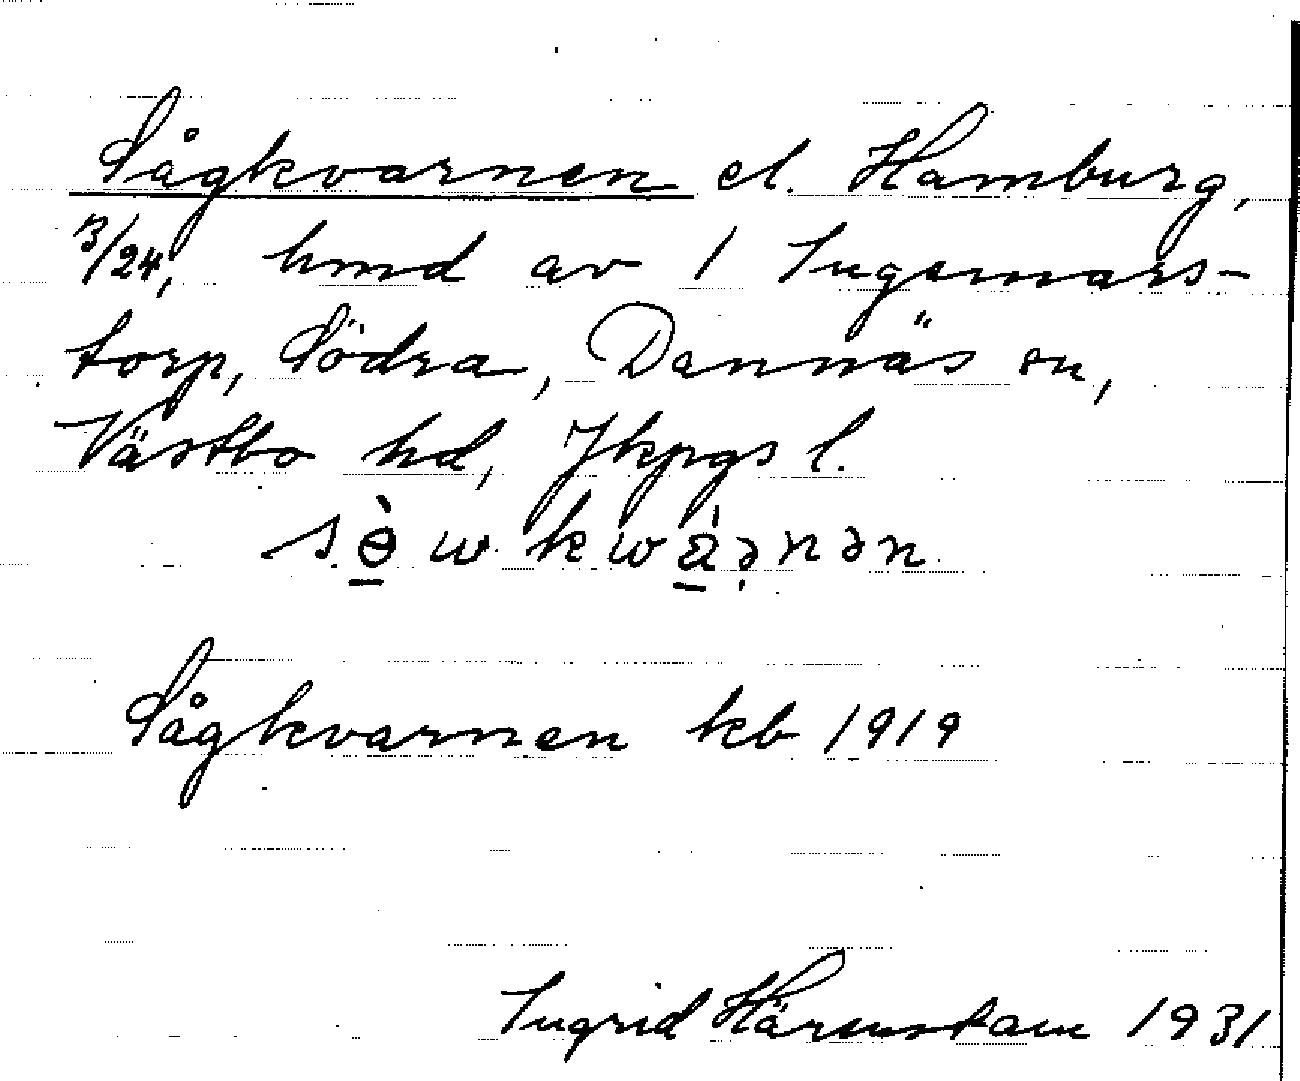 Sågkvarnen el. Hamburg,
3/24, hmd av 1 Ingemars-
torp, Södra, Dannäs sn,
Västbo hd, Jkpgs l.
sɵ̀wkwàənən
Sågkvarnen kb 1919
Ingrid Härenstam 1931